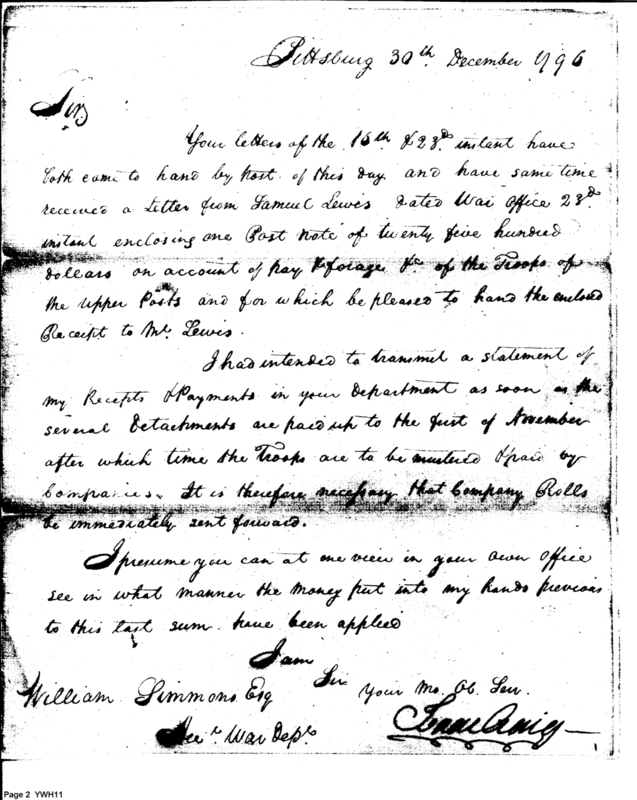 Pittsburg 30th December 1796
Sir
Your letters of the 16th & 23d instant have
both came to hand by post of this day and have same time
received a Letter from Samuel Lewis dated War Office 23d
instant enclosing one Post Note of twenty five hundred
dollars on account of pay & forage &c of the Troops of
the upper Posts and for which be pleased to hand the enclosed
Receipt to Mr Lewis.
I had intended to transmit a statement of
my Receipts & Payments in your Department as soon as the
several Detachments are paid up to the first of November
after which time the Troops are to be mustered & paid by
Companies. It is therefore necessary that Company Rolls
be immediately sent forward.
I presume you can at one view in your own office
see in what manner the money put into my hands previous
to this last sum have been applied
I am
Sir Your Mo. Ob. Ser.
William Simmons Esq
Isaac Craig
War Dept
Page 2 YWH11